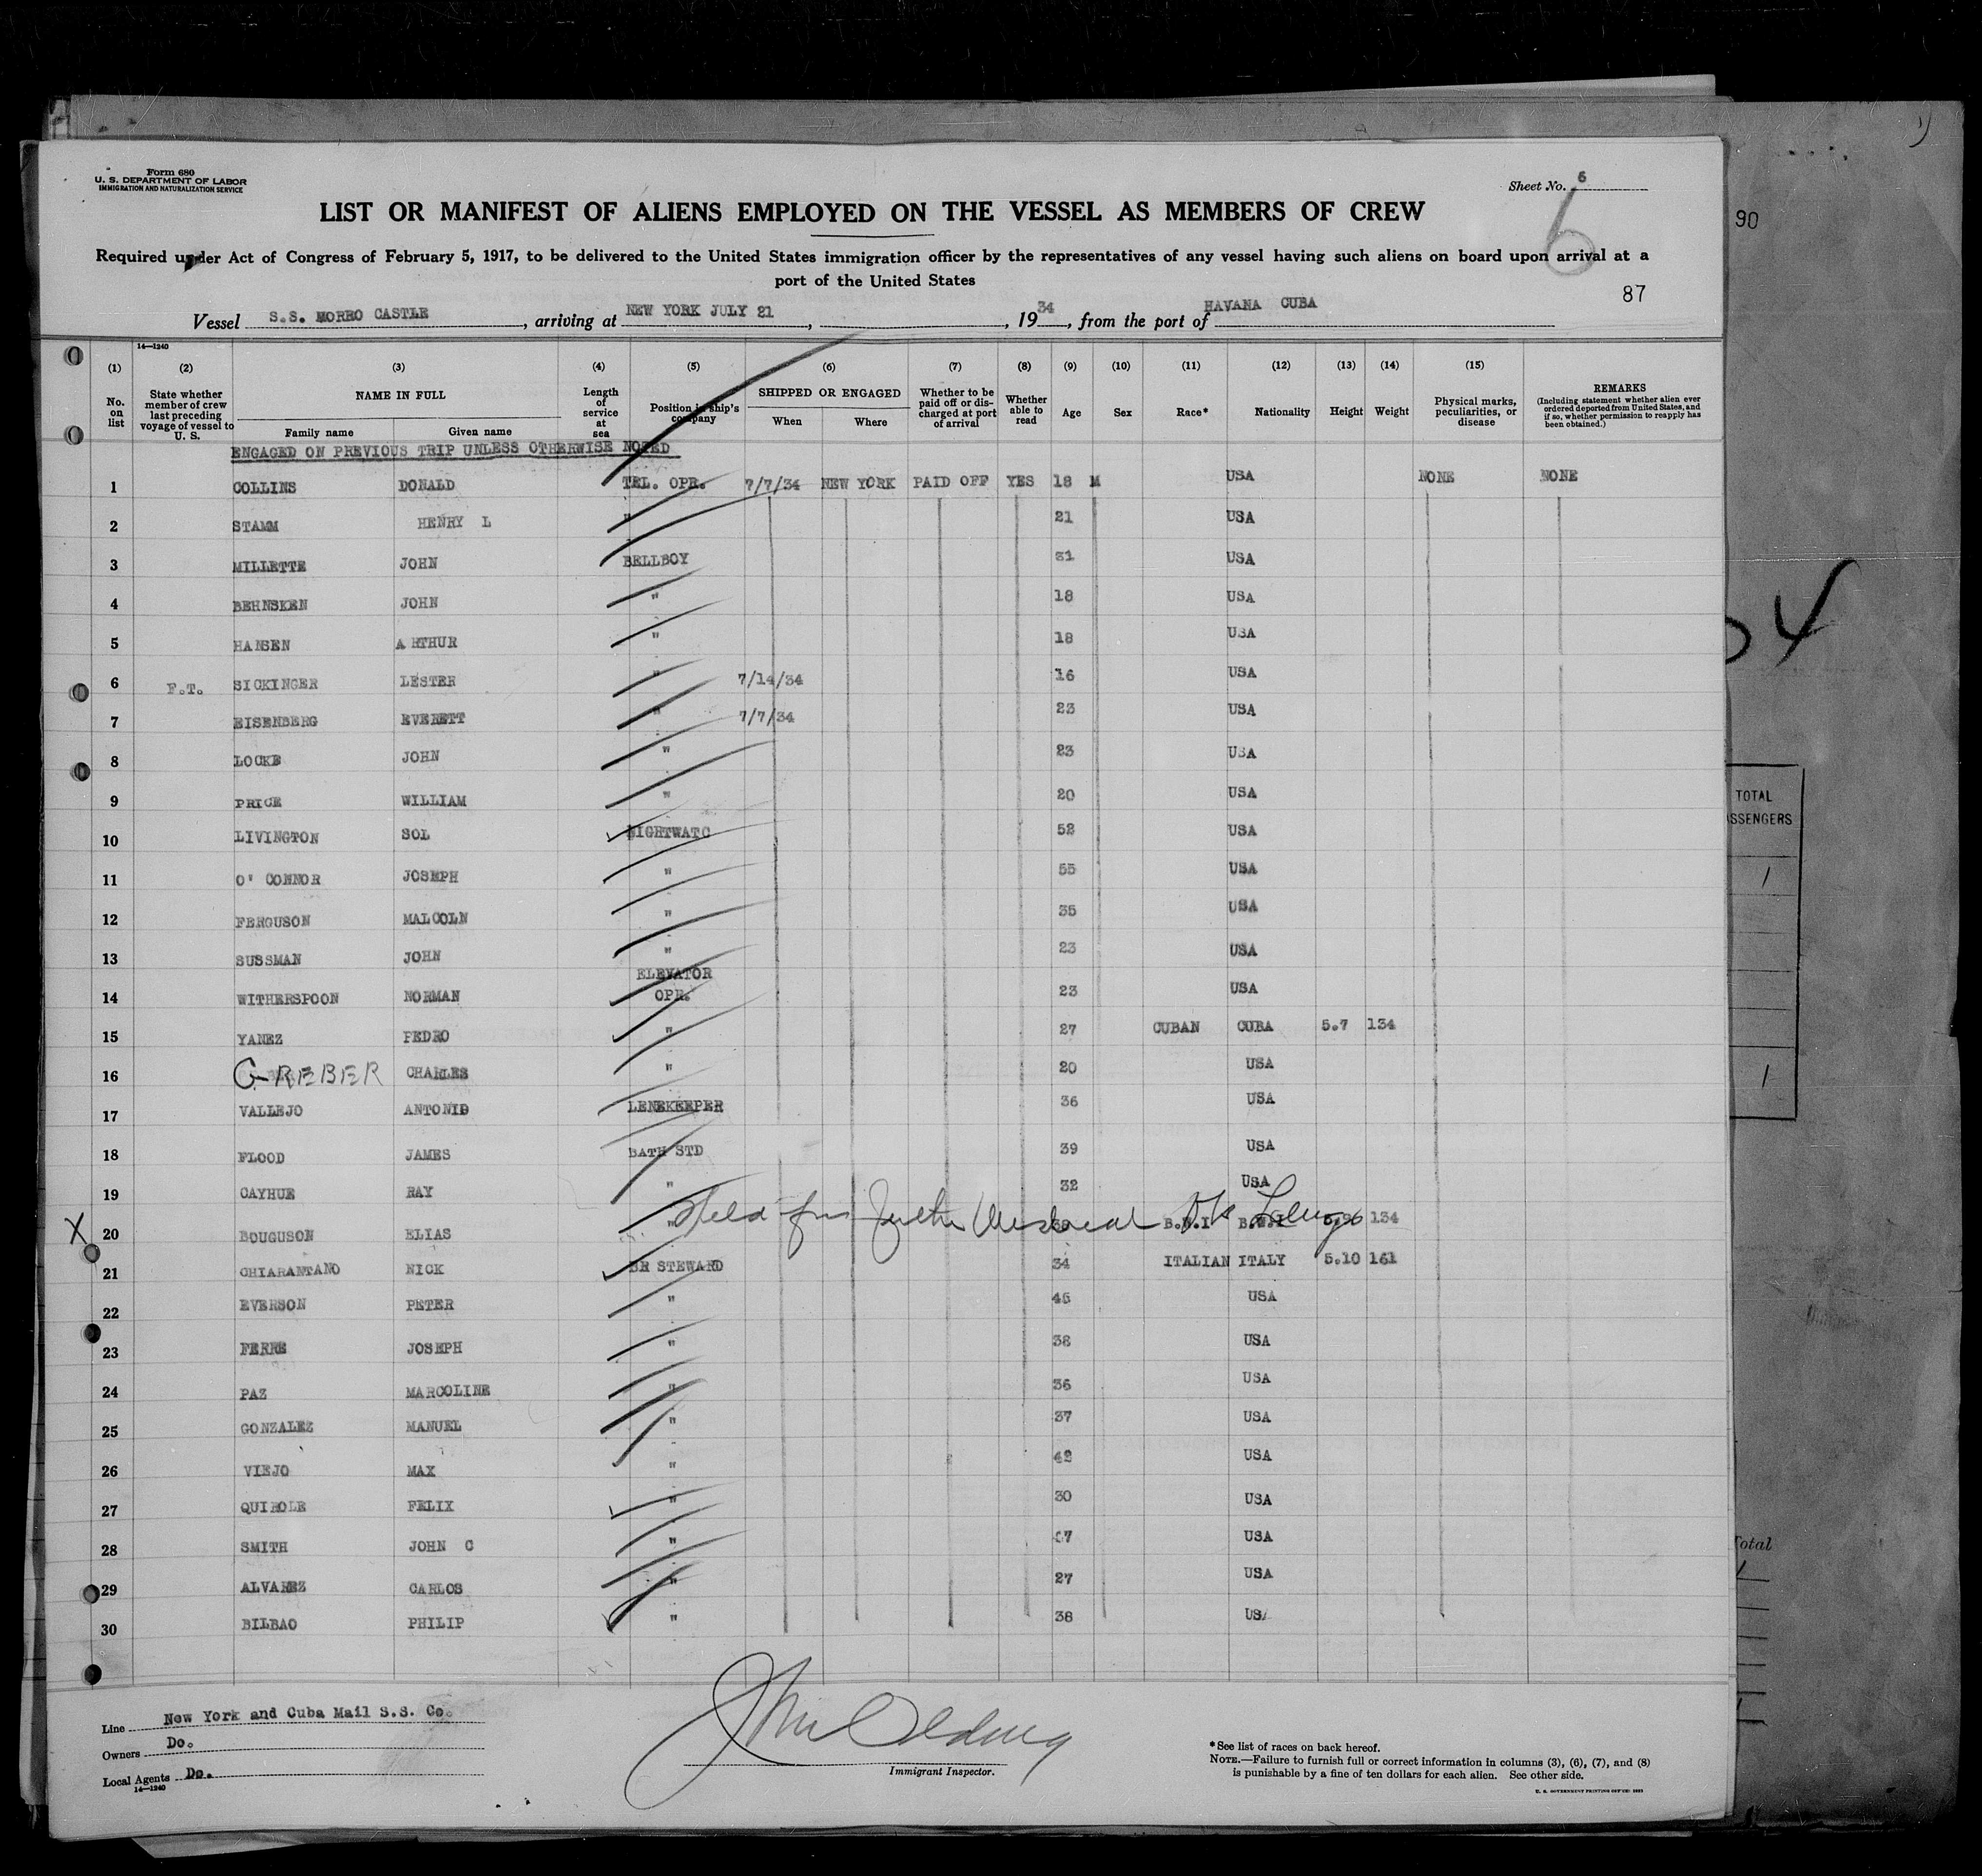 Form 680
U. S. DEPARTMENT OF LABOR
IMMIGRATION AND NATURALIZATION SERVICE
Sheet No. 6
6
90
LIST OR MANIFEST OF ALIENS EMPLOYED ON THE VESSEL AS MEMBERS OF CREW
Required under Act of Congress of February 5, 1917, to be delivered to the United States immigration officer by the representatives of any vessel having such aliens on board upon arrival at a
port of the United States
87
Vessel S.S. MORRO CASTLE, arriving at NEW YORK JULY 21, 1934, from the port of HAVANA CUBA
14—1240
(1) (2) (3) (4) (5) (6) (7) (8) (9) (10) (11) (12) (13) (14) (15)
No. on list
State whether member of crew last preceding voyage of vessel to U. S.
NAME IN FULL
Family name Given name
Length of service at sea
Position in ship's company
SHIPPED OR ENGAGED
When Where
Whether to be paid off or discharged at port of arrival
Whether able to read
Age Sex Race* Nationality Height Weight
Physical marks, peculiarities, or disease
REMARKS
(Including statement whether alien ever ordered deported from United States, and if so, whether permission to reapply has been obtained.)
ENGAGED ON PREVIOUS TRIP UNLESS OTHERWISE NOTED
1 COLLINS DONALD TEL. OPR. 7/7/34 NEW YORK PAID OFF YES 18 M USA NONE NONE
2 STAMM HENRY L " 21 USA
3 MILLETTE JOHN BELLBOY 31 USA
4 BEHNSKEN JOHN " 18 USA
5 HANSEN ARTHUR " 18 USA
6 F.T. SICKINGER LESTER " 7/14/34 16 USA
7 EISENBERG EVERETT " 7/7/34 23 USA
8 LOCKE JOHN " 23 USA
9 PRICE WILLIAM " 20 USA
10 LIVINGTON SOL NIGHTWATC 52 USA
11 O' CONNOR JOSEPH " 55 USA
12 FERGUSON MALCOLN " 35 USA
13 SUSSMAN JOHN " 23 USA
14 WITHERSPOON NORMAN ELEVATOR OPR. 23 USA
15 YANEZ PEDRO " 27 CUBAN CUBA 5.7 134
16 GREBER CHARLES " 20 USA
17 VALLEJO ANTONIO LENEKEEPER 36 USA
18 FLOOD JAMES BATH STD 39 USA
19 CAYHUE RAY " 32 USA
X 20 BOUGUSON ELIAS " Held for further B.W.I B.W.I 134
21 CHIARANTANO NICK BR STEWARD 34 ITALIAN ITALY 5.10 161
22 EVERSON PETER " 45 USA
23 FERRE JOSEPH " 38 USA
24 PAZ MARCOLINE " 36 USA
25 GONZALEZ MANUEL " 37 USA
26 VIEJO MAX " 42 USA
27 QUIROLE FELIX " 30 USA
28 SMITH JOHN C " USA
29 ALVAREZ CARLOS " 27 USA
30 BILBAO PHILIP " 38 USA
Line New York and Cuba Mail S.S. Co.
Owners Do.
Local Agents Do.
14—1240
Immigrant Inspector.
*See list of races on back hereof.
NOTE.—Failure to furnish full or correct information in columns (3), (6), (7), and (8)
is punishable by a fine of ten dollars for each alien. See other side.
U. S. GOVERNMENT PRINTING OFFICE: 1933
TOTAL